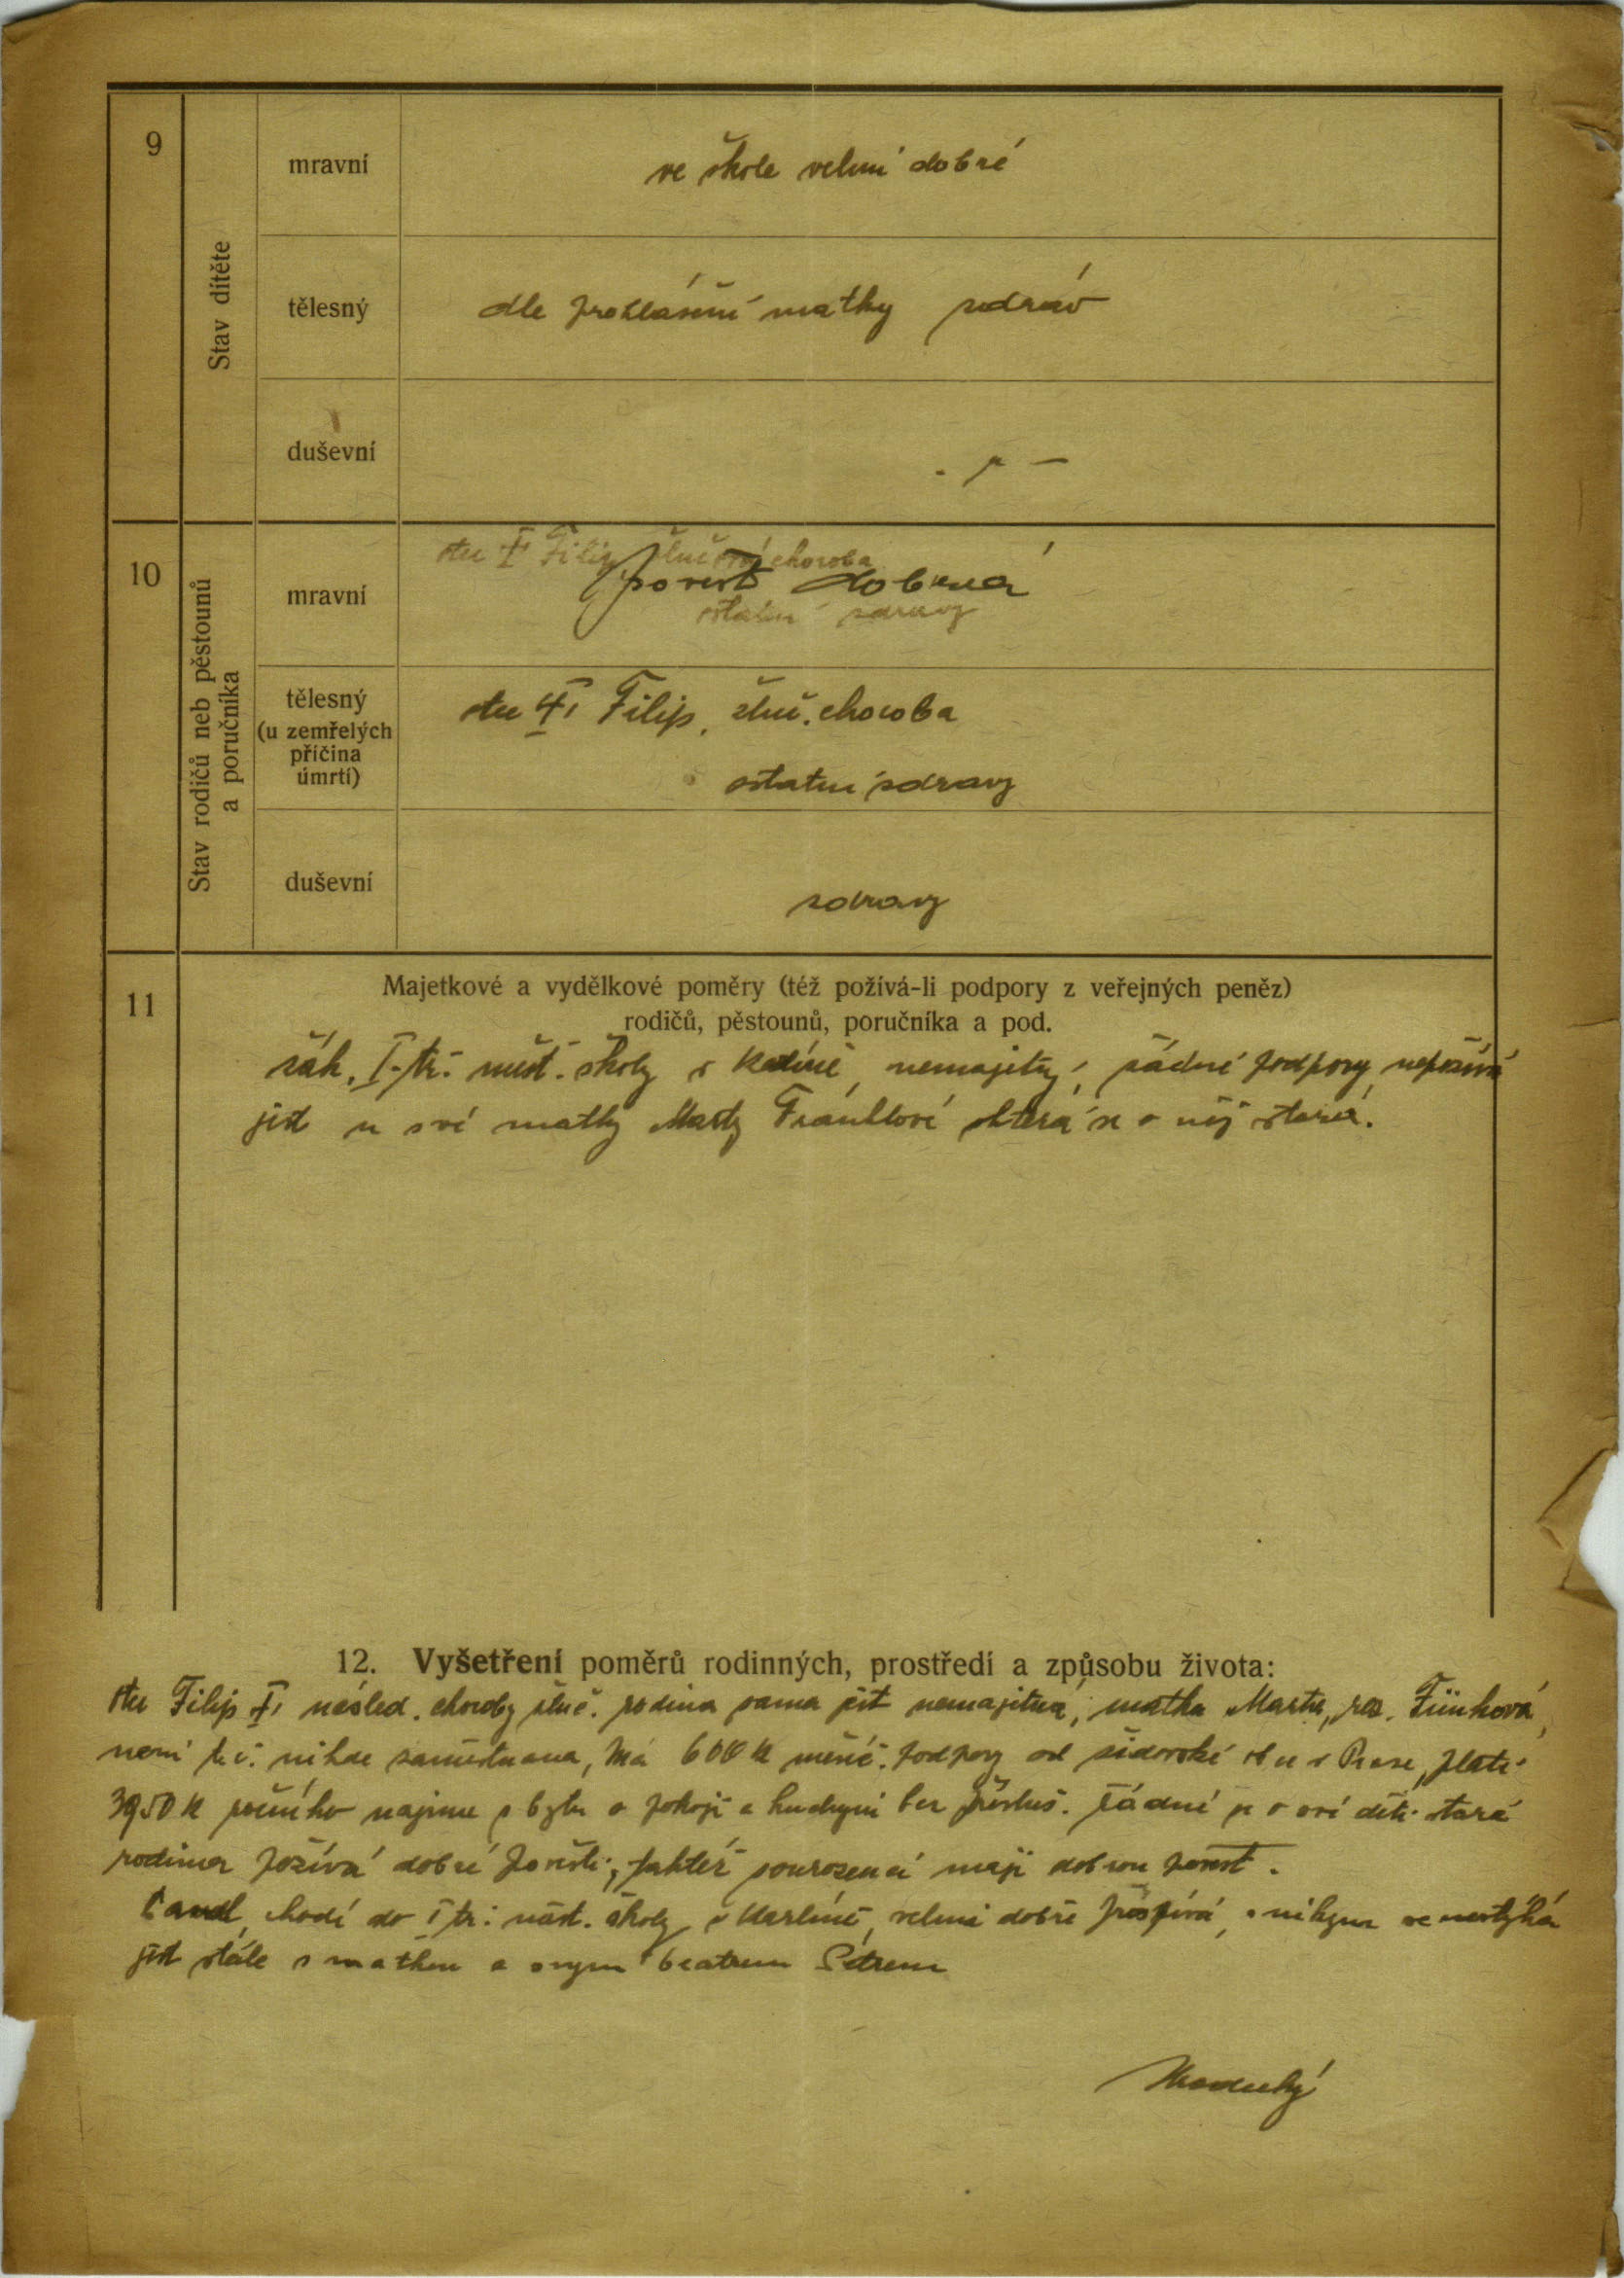 9
Stav dítěte
mravní
ve škole velmi dobré
tělesný
dle prohlášení matky zdráv
duševní
10
Stav rodičů neb pěstounů
a poručníka
mravní
otec Filip choroba
pověst dobrá
ostatní zdravý
tělesný
(u zemřelých
příčina
úmrtí)
otec Filip, žluč. choroba
ostatní zdravý
duševní
zdravý
11
Majetkové a vydělkové poměry (též požívá-li podpory z veřejných peněz)
rodičů, pěstounů, poručníka a pod.
žák. I. tř. měšť. školy v Karlíně, nemajetný, žádné podpory nepožívá
jest u své matky Marty Fränklové která se o něj stará.
12. Vyšetření poměrů rodinných, prostředí a způsobu života:
otec Filip násled. choroby žluč. rodina sama jest nemajetná, matka Marta, roz. Fünková,
není t. č. nikde zaměstnana, má 600 K měsíč. podpory od židovské v Praze, platí
3950 K ročního najmu z bytu o pokoji a kuchyni bez přísluš. řádně se o své děti stará
rodina požívá dobré pověsti, taktéž sourozenci mají dobrou pověst.
chodí do I tř. měšť. školy v Karlíně, velmi dobře prospívá, s nikým se nestýká
jest stále s matkou a svým bratrem Petrem